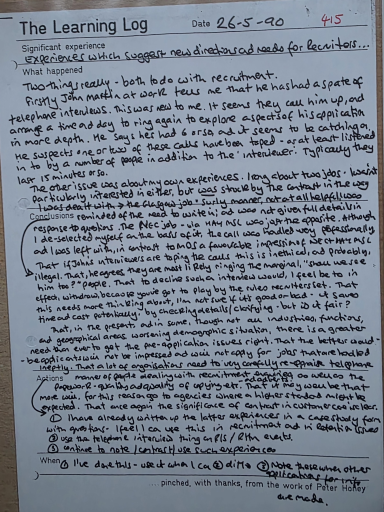 The Learning Log Date 26-5-90 415
Significant experience
Experiences which suggest new directions and needs for Recruitors...
What happened
Two things really - both to do with recruitment.
Firstly John Martin at work tells me that he has had a spate of
telephone interviews. This was new to me. It seems they call him up, and
arrange a time and day to ring again to explore aspects of his application
in more depth. He says he's had 6 or so and it seems to be catching on.
He suspects one or two of these calls have been taped - or at least listened
in to by a number of people in addition to the interviewer. Typically they
last 15 minutes or so.
The other issue was about my own experiences. I rang about two jobs. I wasn't
particularly interested in either, but was struck by the contrast in the way
I was dealt with → the Glasgow job - surly manner, not at all helpful was
Conclusions reminded of the need to write in; and was not given full detail in
response to questions. The job - via HAY MSL was just the opposite. Although
I de-selected myself on the basis of it the call was handled very professionally,
and I was left with in contrast to a favourable impression of HAY MSL
That if John's interviewers are taping the calls this is unethical, and probably,
illegal. That, he agrees they are most likely ringing the marginal, "shall we see
him too?" people. That to decline such an interview would, I feel be to in
effect, withdraw, because you've got to play by the rules recruiters set. That
this needs more thinking about, I'm not sure if it's good or bad - it saves
time and cost potentially, by checking details/clarifying - but is it fair?
That, in the present, and in some, though not all industries, functions,
and geographical areas, worsening demographic situation, there is a greater
need than ever to get the pre-application issues right. That the better would
-be applicants will not be impressed and will not apply for jobs that are handled
ineptly. That a lot of organisations need to very carefully re-appraise telephone
Actions manner of people dealing with recruitment as well as the
Paperwork - quality and quantity of replying etc. That it may well be that
more will, for this reason go to agencies where a higher standard might be
expected. That once again the significance of contrast in customer care is clear.
① I have already written up the latter experience in a case study form
with questions - I feel I can use this in recruitment and in
② use the telephone interview thing on events.
③ continue to note/contrast/use such experiences
When ① I've done this - use it when I can ② ditto ③ Note these when other
applications for info
are made.
... pinched, with thanks, from the work of Peter Honey